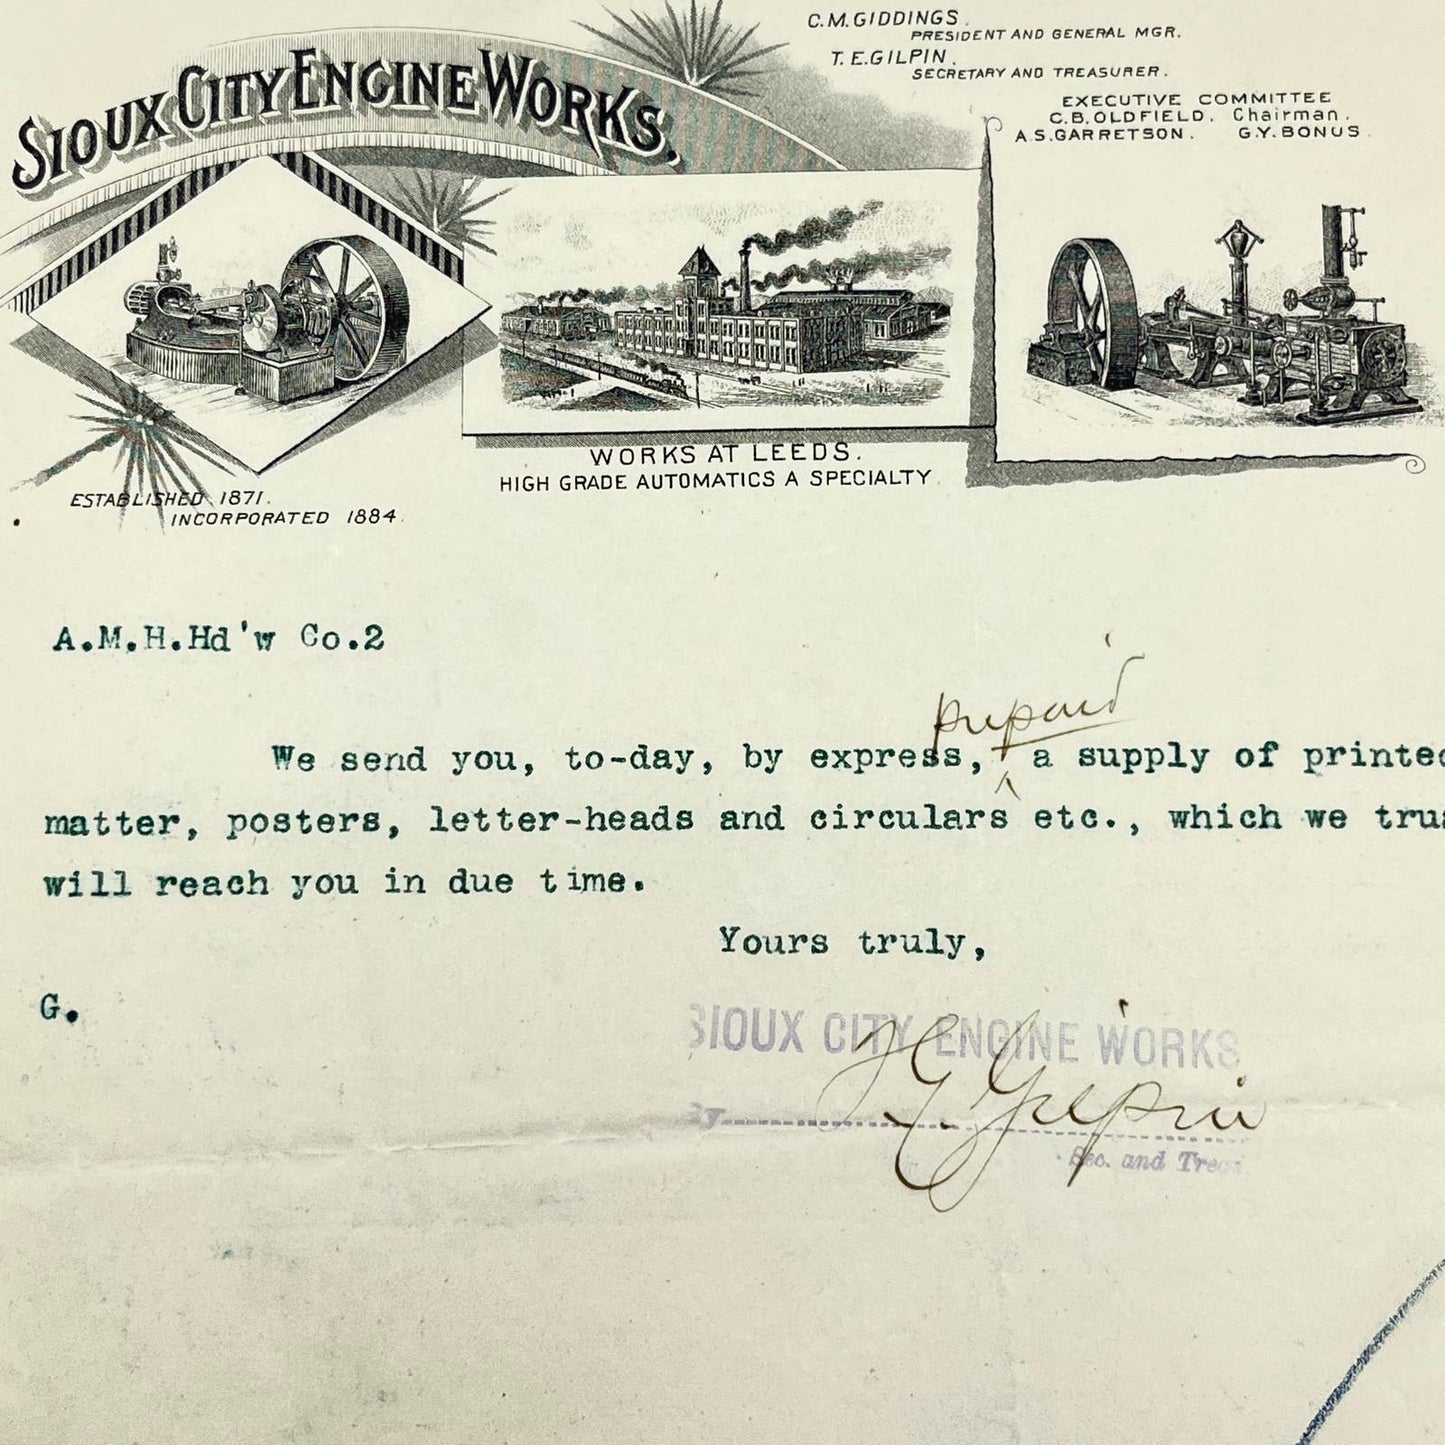 SIOUX CITY ENGINE WORKS.
C.M. GIDDINGS.
PRESIDENT AND GENERAL MGR.
T.E. GILPIN.
SECRETARY AND TREASURER.
EXECUTIVE COMMITTEE
C.B. OLDFIELD, Chairman.
A.S. GARRETSON. G.Y. BONUS.
WORKS AT LEEDS.
HIGH GRADE AUTOMATICS A SPECIALTY.
ESTABLISHED 1871.
INCORPORATED 1884.
A.M.H.Hd'w Co.2
prepaid
We send you, to-day, by express, ^ a supply of printed
matter, posters, letter-heads and circulars etc., which we trus
will reach you in due time.
Yours truly,
G.
SIOUX CITY ENGINE WORKS
By Gilpin
Sec. and Treas.